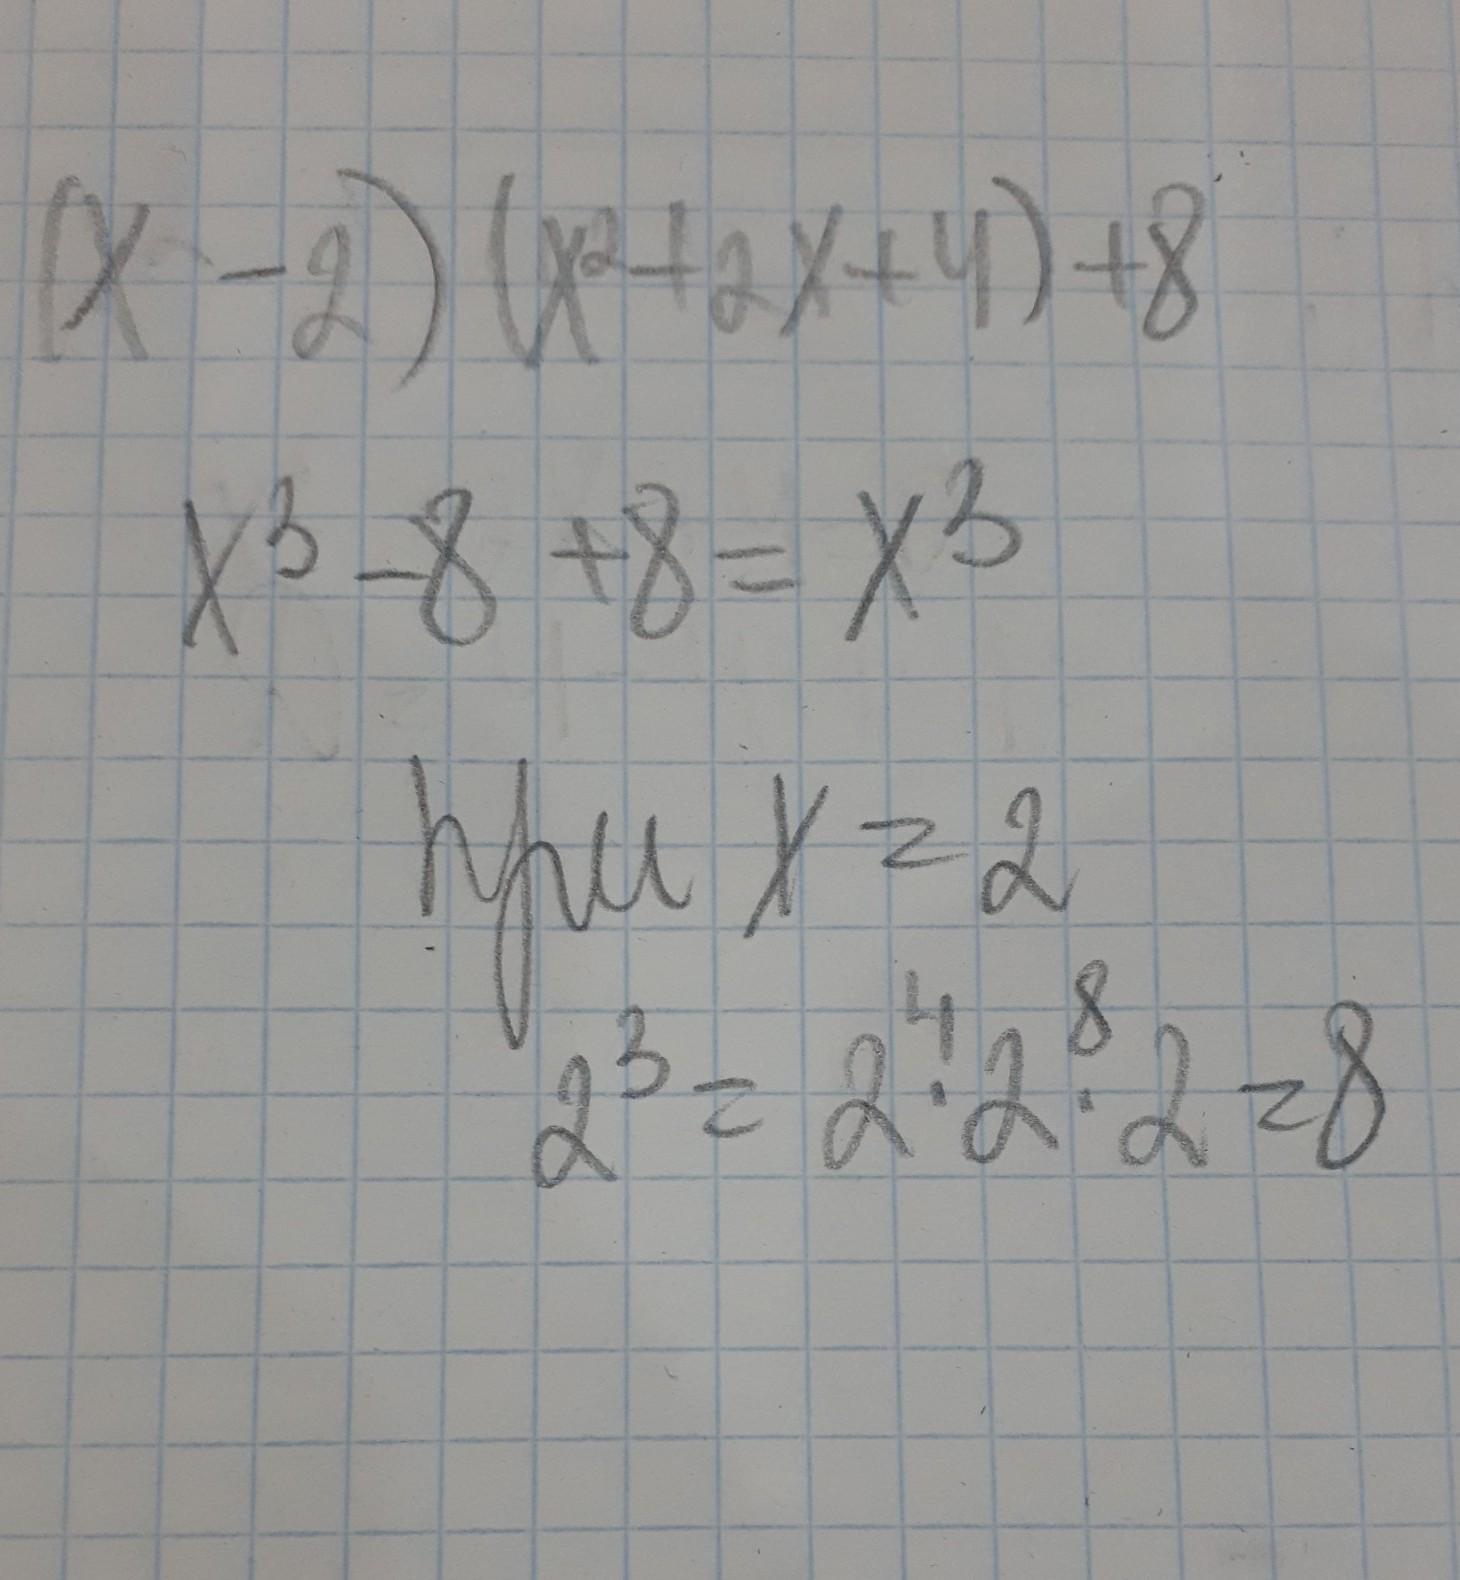 (x - 2) (x² + 2x + 4) + 8
x³ - 8 + 8 = x³
при x = 2
2³ = 2 ⁴· 2 ⁸· 2 = 8